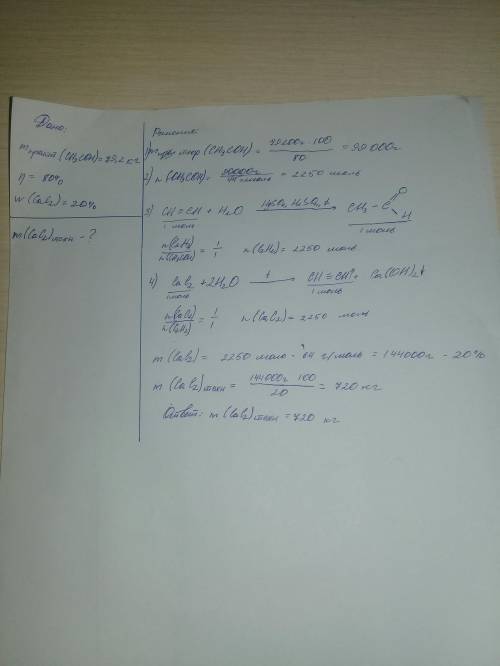 Дано:
m практ (CH₃COH) = 79,2 кг
η = 80%
w (CaC₂) = 20%
m(CaC₂)техн - ?
Решение:
1) m теор (CH₃COH) = 79200г · 100 / 80 = 99000г
2) n (CH₃COH) = 99000г / 44 г/моль = 2250 моль
3) CH ≡ CH + H₂O HgSO₄, H₂SO₄, t → CH₃ - C O H
1 моль 1 моль
n(C₂H₂) / n(CH₃COH) = 1/1 n(C₂H₂) = 2250 моль
4) CaC₂ + 2H₂O t → CH ≡ CH↑ + Ca(OH)₂↓
1 моль 1 моль
n(CaC₂) / n(C₂H₂) = 1/1 n(CaC₂) = 2250 моль
m (CaC₂) = 2250 моль · 64 г/моль = 144000г - 20%
m (CaC₂)техн = 144000г · 100 / 20 = 720 кг
Ответ: m (CaC₂)техн = 720 кг